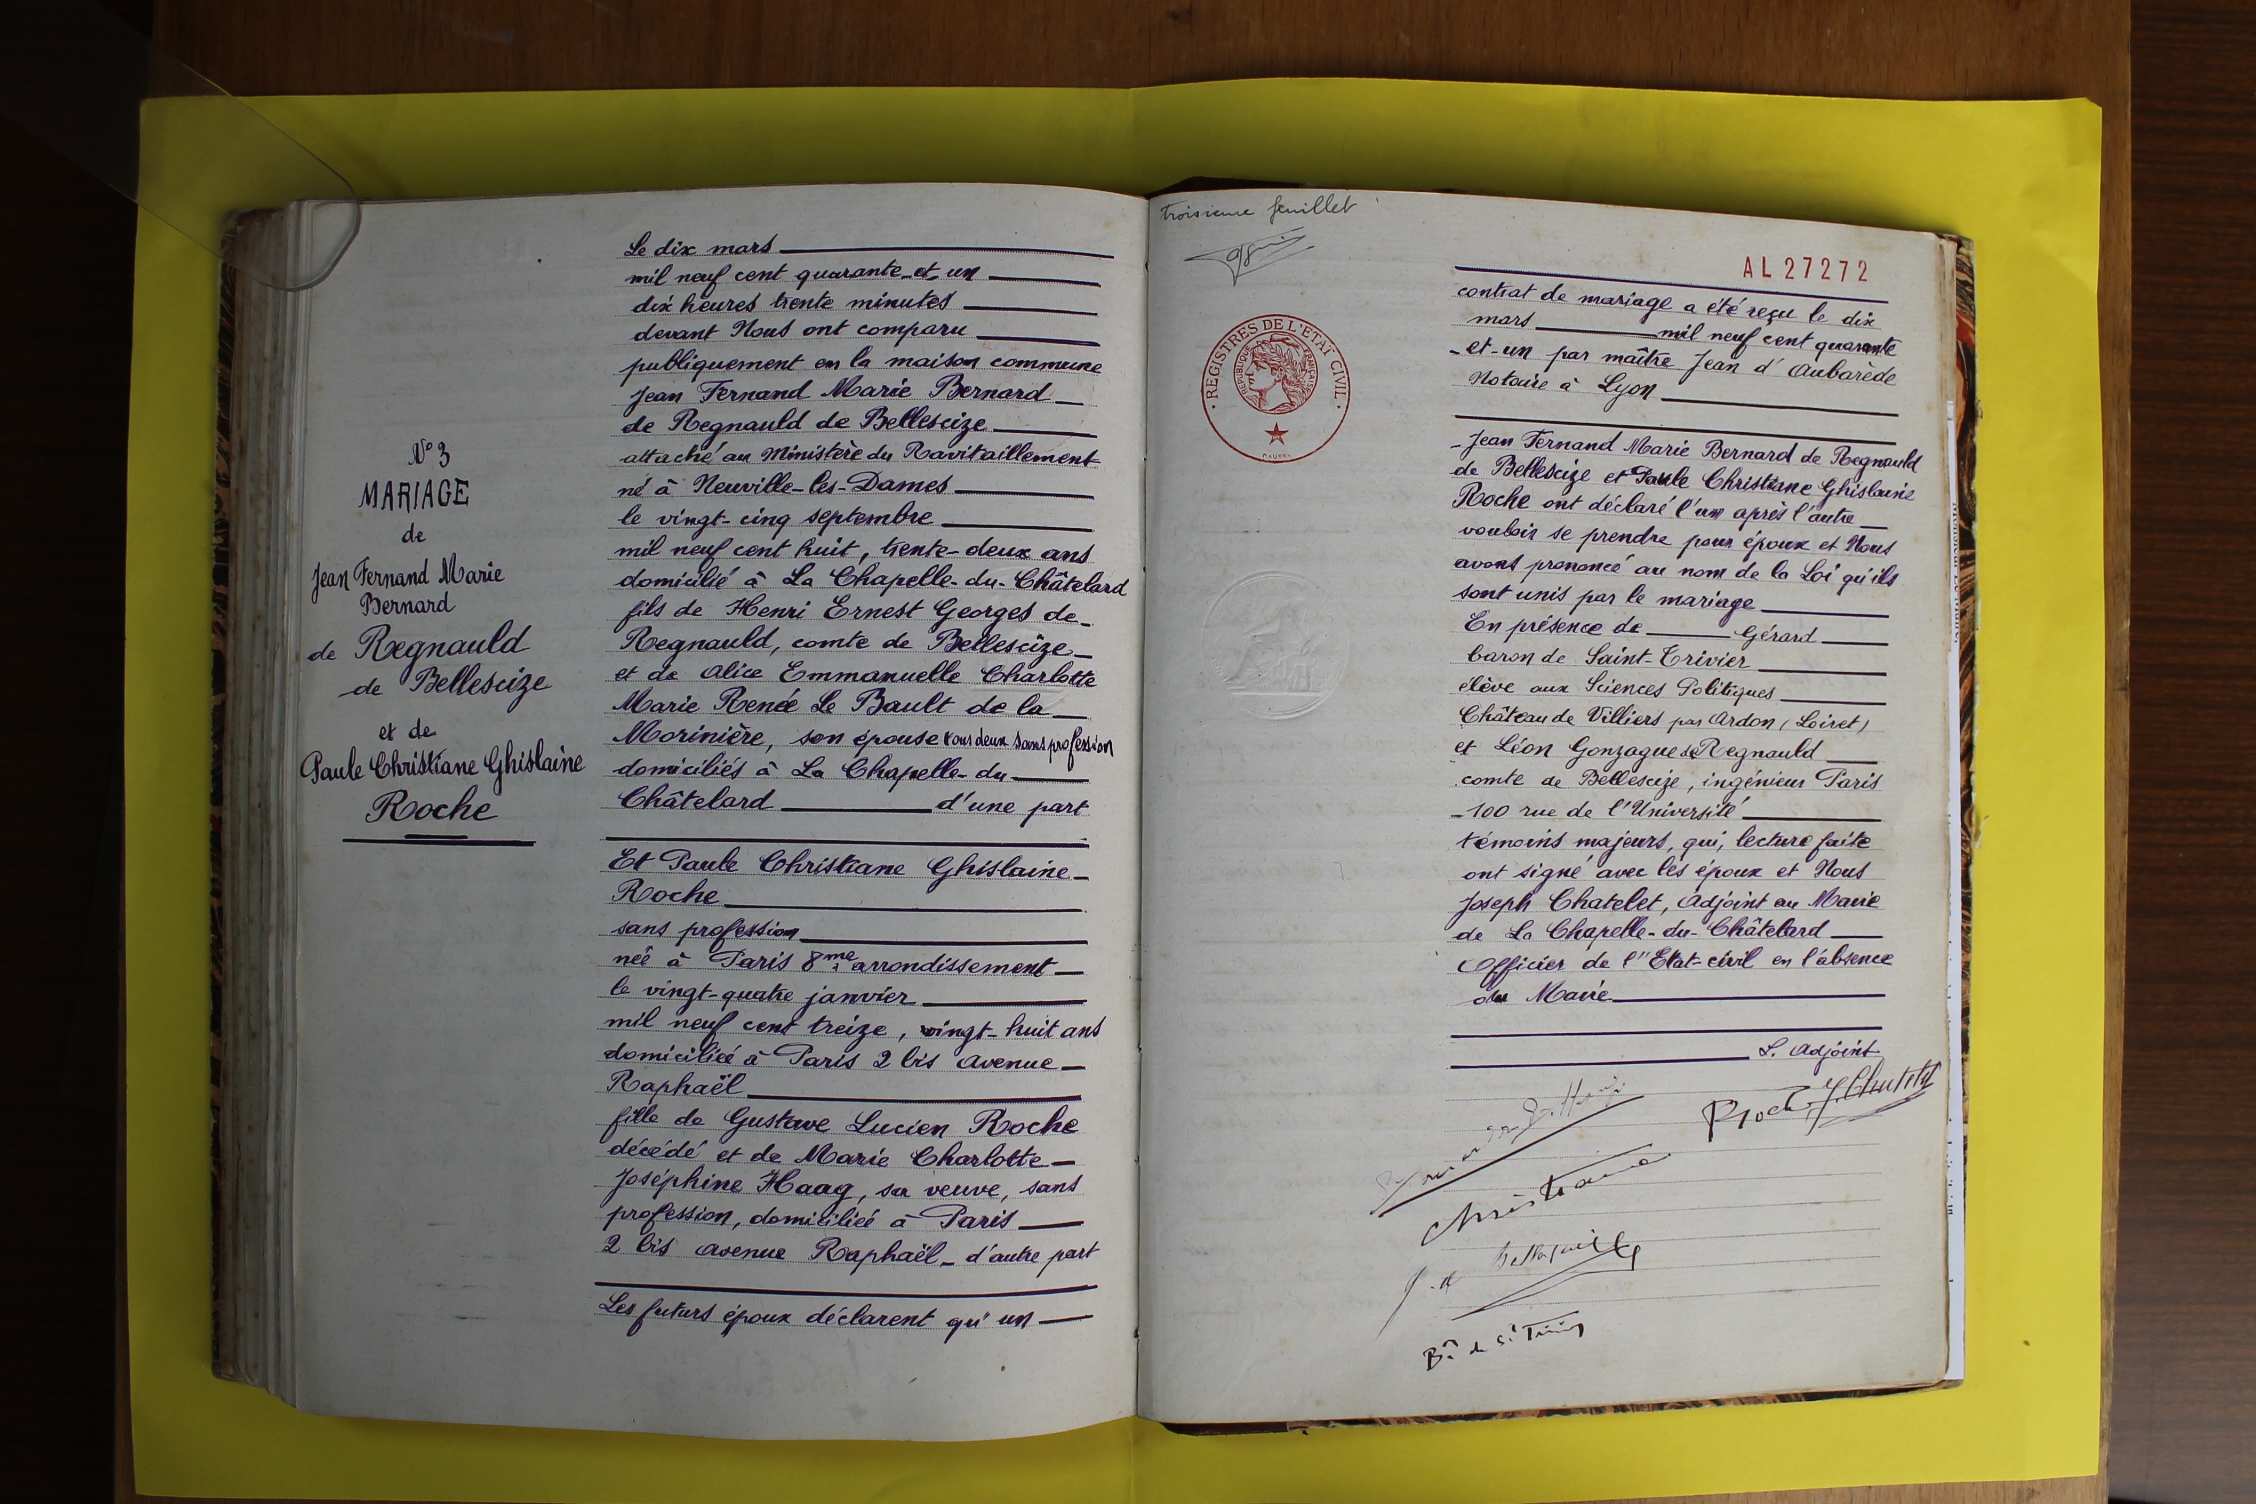 N° 3
MARIAGE
de
Jean Fernand Marie
Bernard
de Regnauld
de Bellescize
et de
Paule Christiane Ghislaine
Roche
Le dix mars
mil neuf cent quarante-et-un
dix heures trente minutes
devant Nous ont comparu
publiquement en la maison commune
Jean Fernand Marie Bernard
de Regnauld de Bellescize
attaché au Ministère du Ravitaillement
né à Neuville-les-Dames
le vingt-cinq septembre
mil neuf cent huit, trente-deux ans
domicilié à La Chapelle-du-Châtelard
fils de Henri Ernest Georges de
Regnauld, comte de Bellescize
et de Alice Emmanuelle Charlotte
Marie Renée Le Bault de la
Morinière, son épouse tous deux sans profession
domiciliés à La Chapelle-du
Châtelard d'une part
Et Paule Christiane Ghislaine
Roche
sans profession
née à Paris 8me arrondissement
le vingt-quatre janvier
mil neuf cent treize, vingt-huit ans
domiciliée à Paris 2 bis Avenue
Raphaël
fille de Gustave Lucien Roche
décédé et de Marie Charlotte
Joséphine Haag, sa veuve, sans
profession, domiciliée à Paris
2 bis avenue Raphaël - d'autre part
Les futurs époux déclarent qu'un
troisieme feuillet
REGISTRES DE L'ETAT CIVIL
REPUBLIQUE FRANÇAISE
AL 27272
contrat de mariage a été reçu le dix
mars mil neuf cent quarante
-et-un par maître Jean d'Aubarède
Notaire à Lyon
Jean Fernand Marie Bernard de Regnauld
de Bellescize et Paule Christiane Ghislaine
Roche ont déclaré l'un après l'autre
vouloir se prendre pour époux et Nous
avons prononcé au nom de la Loi qu'ils
sont unis par le mariage
En présence de Gérard
baron de Saint-Trivier
elève aux Sciences Politiques
Château de Villiers par Ardon (Loiret)
et Léon Gonzague de Regnauld
comte de Bellescize, ingénieur Paris
100 rue de l'Université
témoins majeurs, qui, lecture faite
ont signé avec les époux et Nous
Joseph Chatelet, Adjoint au Maire
de La Chapelle-du-Châtelard
Officier de l'Etat-civil en l'absence
du Maire
L. Adjoint
J. Chatelet
Roche
Christiane
Bon de St Trivier